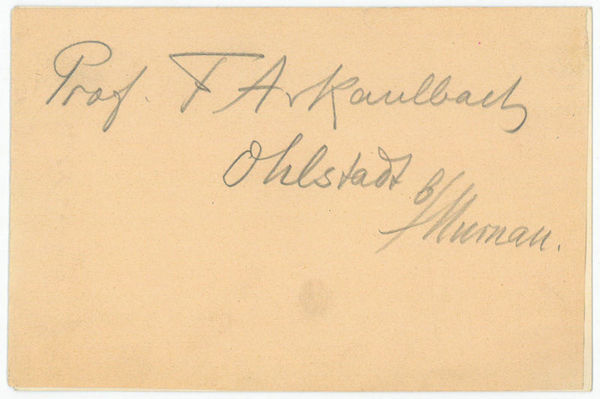 Prof. F A v Kaulbach
Ohlstadt
b/Murnau.